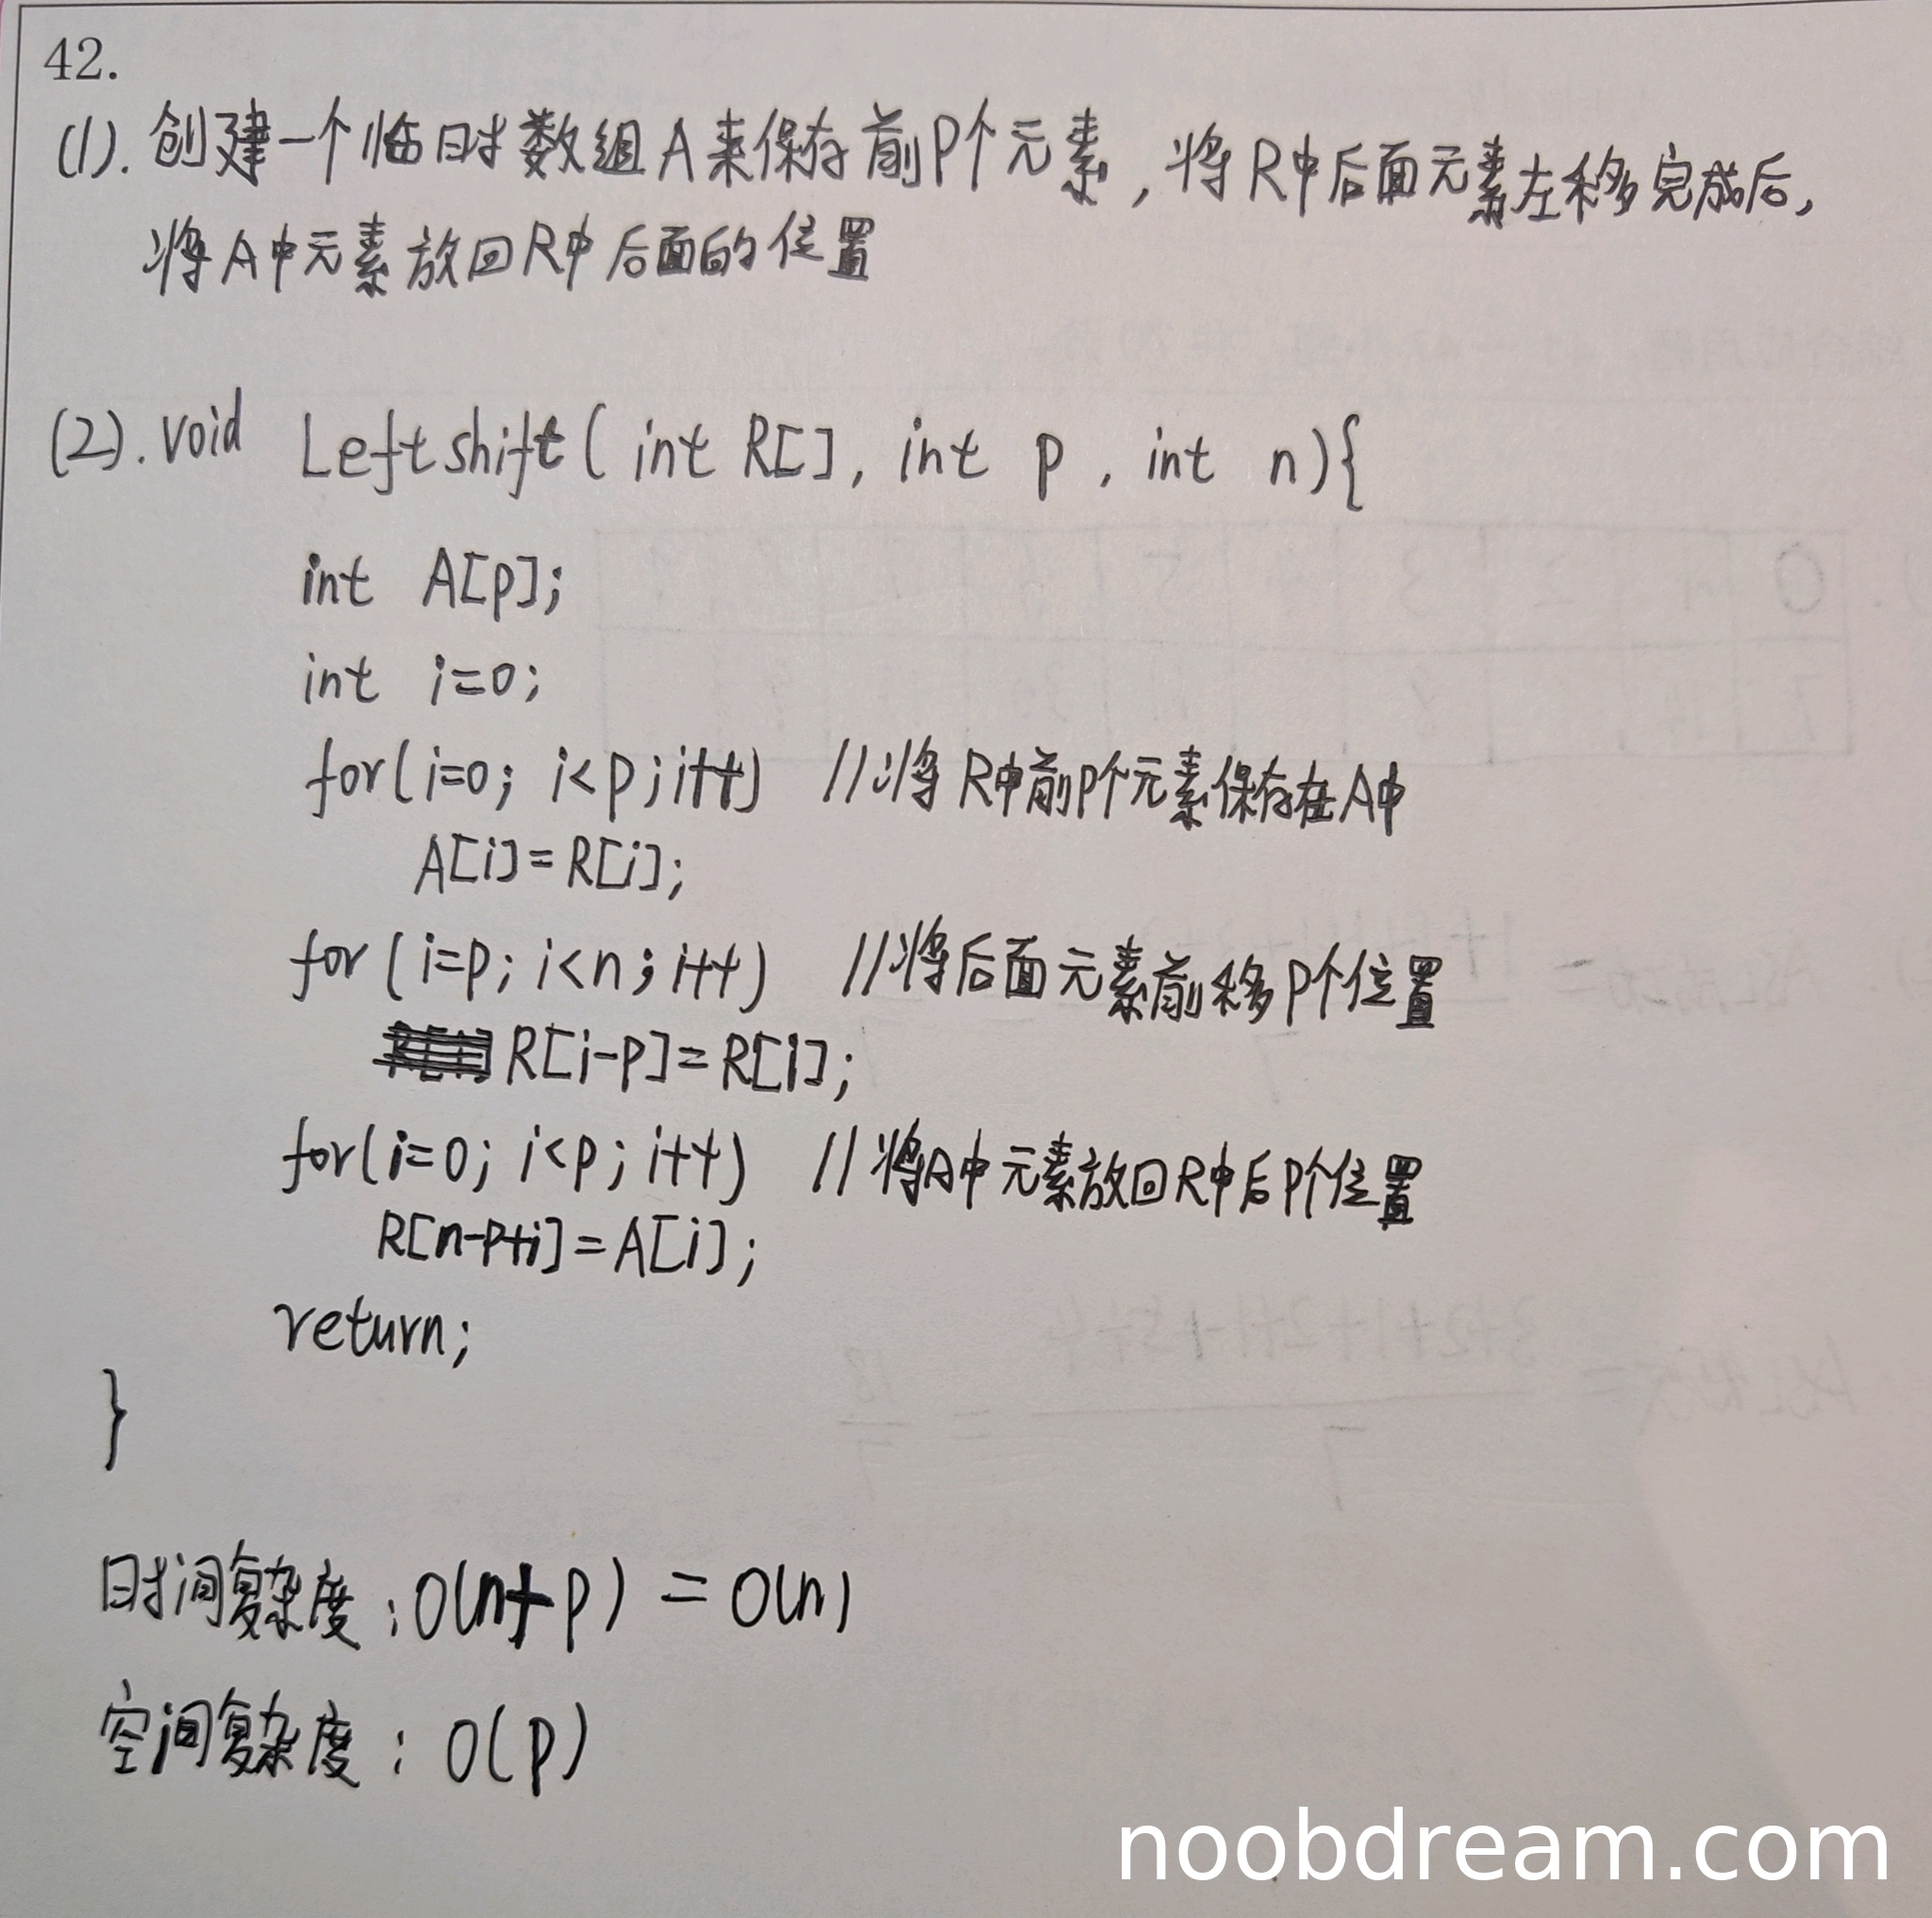 42.
(1). 创建一个临时数组A来保存前P个元素,将R中后面元素左移完成后,
将A中元素放回R中后面的位置
(2). void Leftshift( int R[], int p, int n){
int A[p];
int i=0;
for(i=0; i<p; i++) //将R中前P个元素保存在A中
A[i]=R[i];
for(i=p; i<n; i++) //将后面元素前移P个位置
R[i-p]=R[i];
for(i=0; i<p; i++) //将A中元素放回R中后P个位置
R[n-p+i]=A[i];
return;
}
时间复杂度:O(n+p) = O(n)
空间复杂度:O(p)
noobdream.com